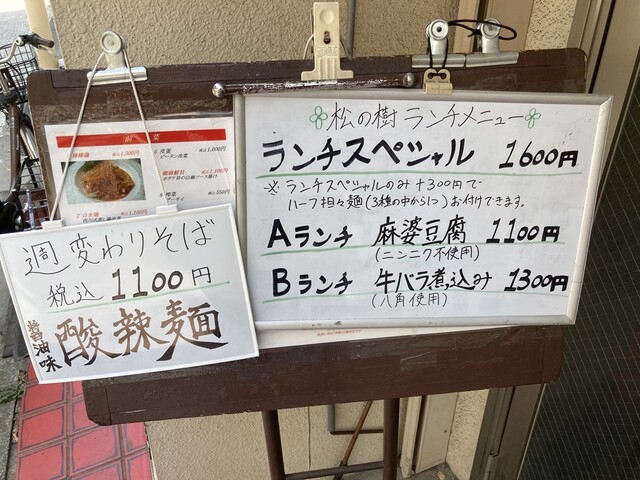 松の樹 ランチメニュー
ランチスペシャル 1600円
※ランチスペシャルのみ+300円で
ハーフ担々麺(3種の中から1つ)お付けできます。
Aランチ 麻婆豆腐 1100円
(ニンニク不使用)
Bランチ 牛バラ煮込み 1300円
(八角使用)
週変わりそば
税込 1100円
醤油味 酸辣麺
前菜
税込1,300円
皮蛋 税込1,000円
ピータン冷菜
税込1,100円
税込550円